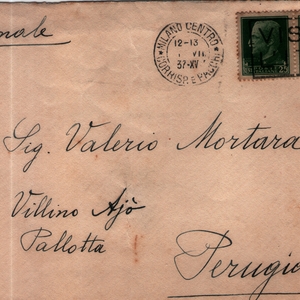 nale
MILANO CENTRO
12-13
VII
37-XV
CORRISP. E PACCHI
Sig. Valerio Mortara
Villino Ajò
Pallotta
Perugia